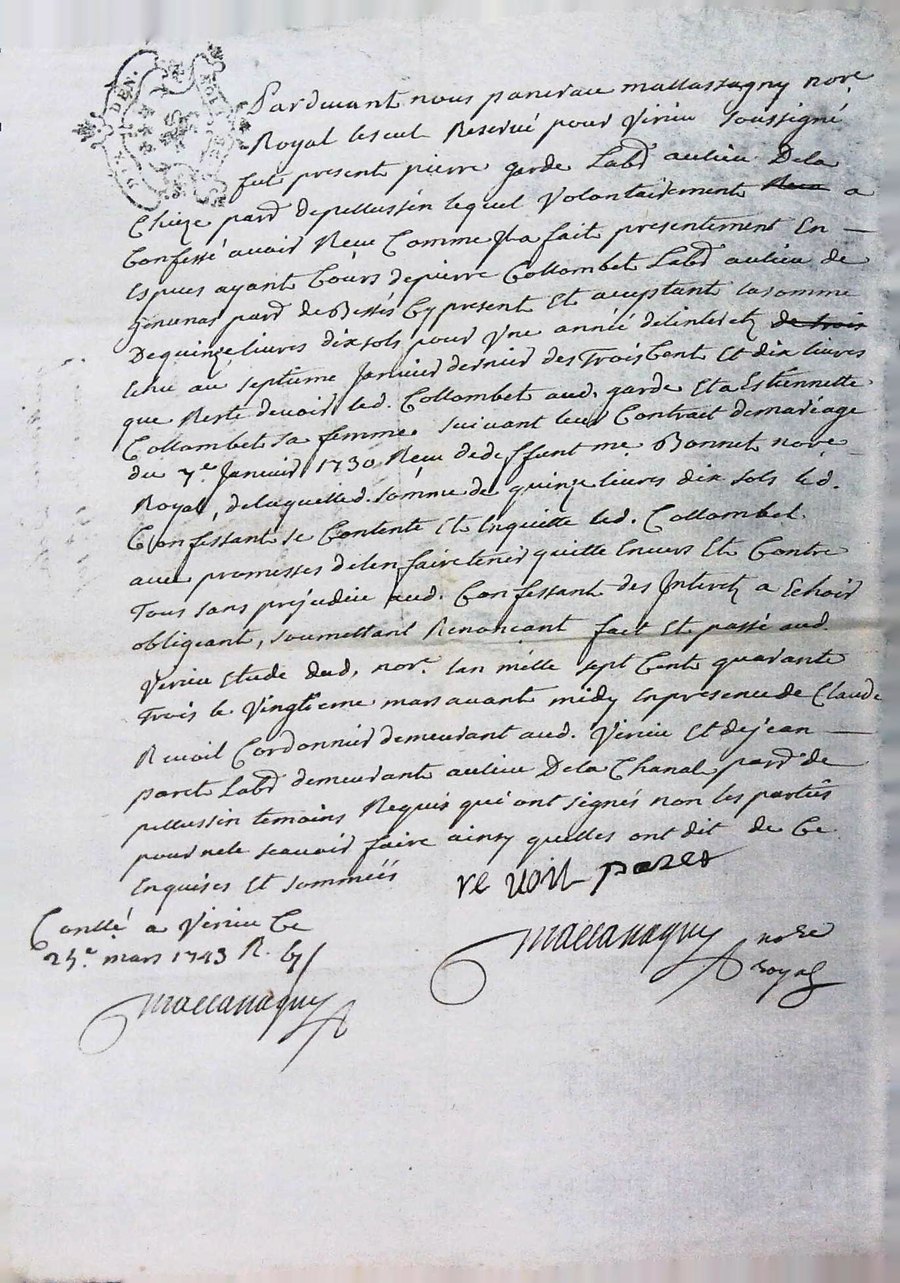 DIX DEN.
Pardevant nous pancrau mallassagny nore.
Royal lescul Reservé pour Virieu soussigné
fut present pierre garde Labr. au lieu Dela
Chieze parr. depellussin lequel Volontairement a
Confessé avoir Receu Comme Jl a fait presentement En
Especes ayant Cours depierre Collombet Labr. au lieu de
parr. de Bessés Cy present Et aceptant la somme
Dequinze livres dix sols pour Vne année delinterest de trois
Echu au septieme Janvier dernier des Trois Cent Et dix livres
que Reste devoir led. Collombet aud. garde Et a Estiennette
Collombet sa femme. suivant leur Contract demariage
du 7e. Janvier 1730 Receu de deffunt me. Bonnet nore.
Royal, delaquelle d. somme de quinze livres dix sols led.
Confessant se Contente Et Enquitte led. Collombet
avec promesses delen faire tenir quitte Envers Et Contre
Tous sans prejudice aud. Confessant des Interest a Echoir
obligeant, soumettant Renonçant fait Et passé aud.
Virieu Etude dud. nore. Lan mille sept Cent quarante
Trois le Vingtieme mars avant midy En presence de Claude
Revoil Cordonnier demeurant aud. Virieu Et dejean
paret Labr. demeurant au lieu Dela Chanal parr. de
pellussin temoins Requis qui ont signés non les parties
pour ne le scavoir faire ainsy quelles ont dit de Ce
Enquises Et sommées
re voil paret
Conllé a Virieu Ce
25e. mars 1743 R.
mallassagny nore
royal
mallassagny